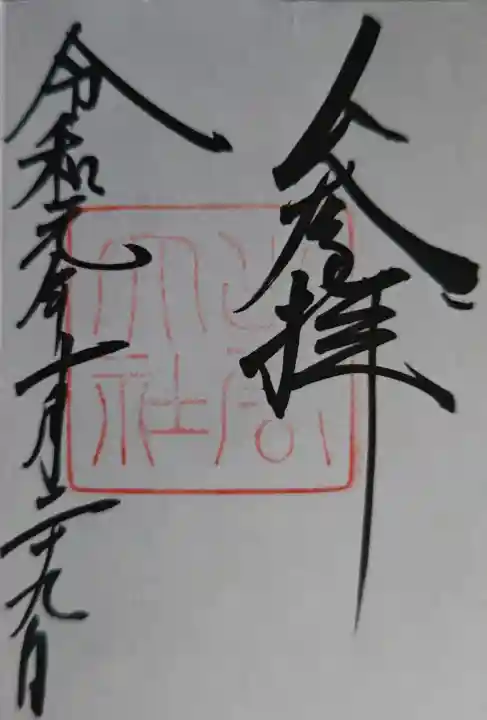 参拝
大社
令和元年十月二十九日